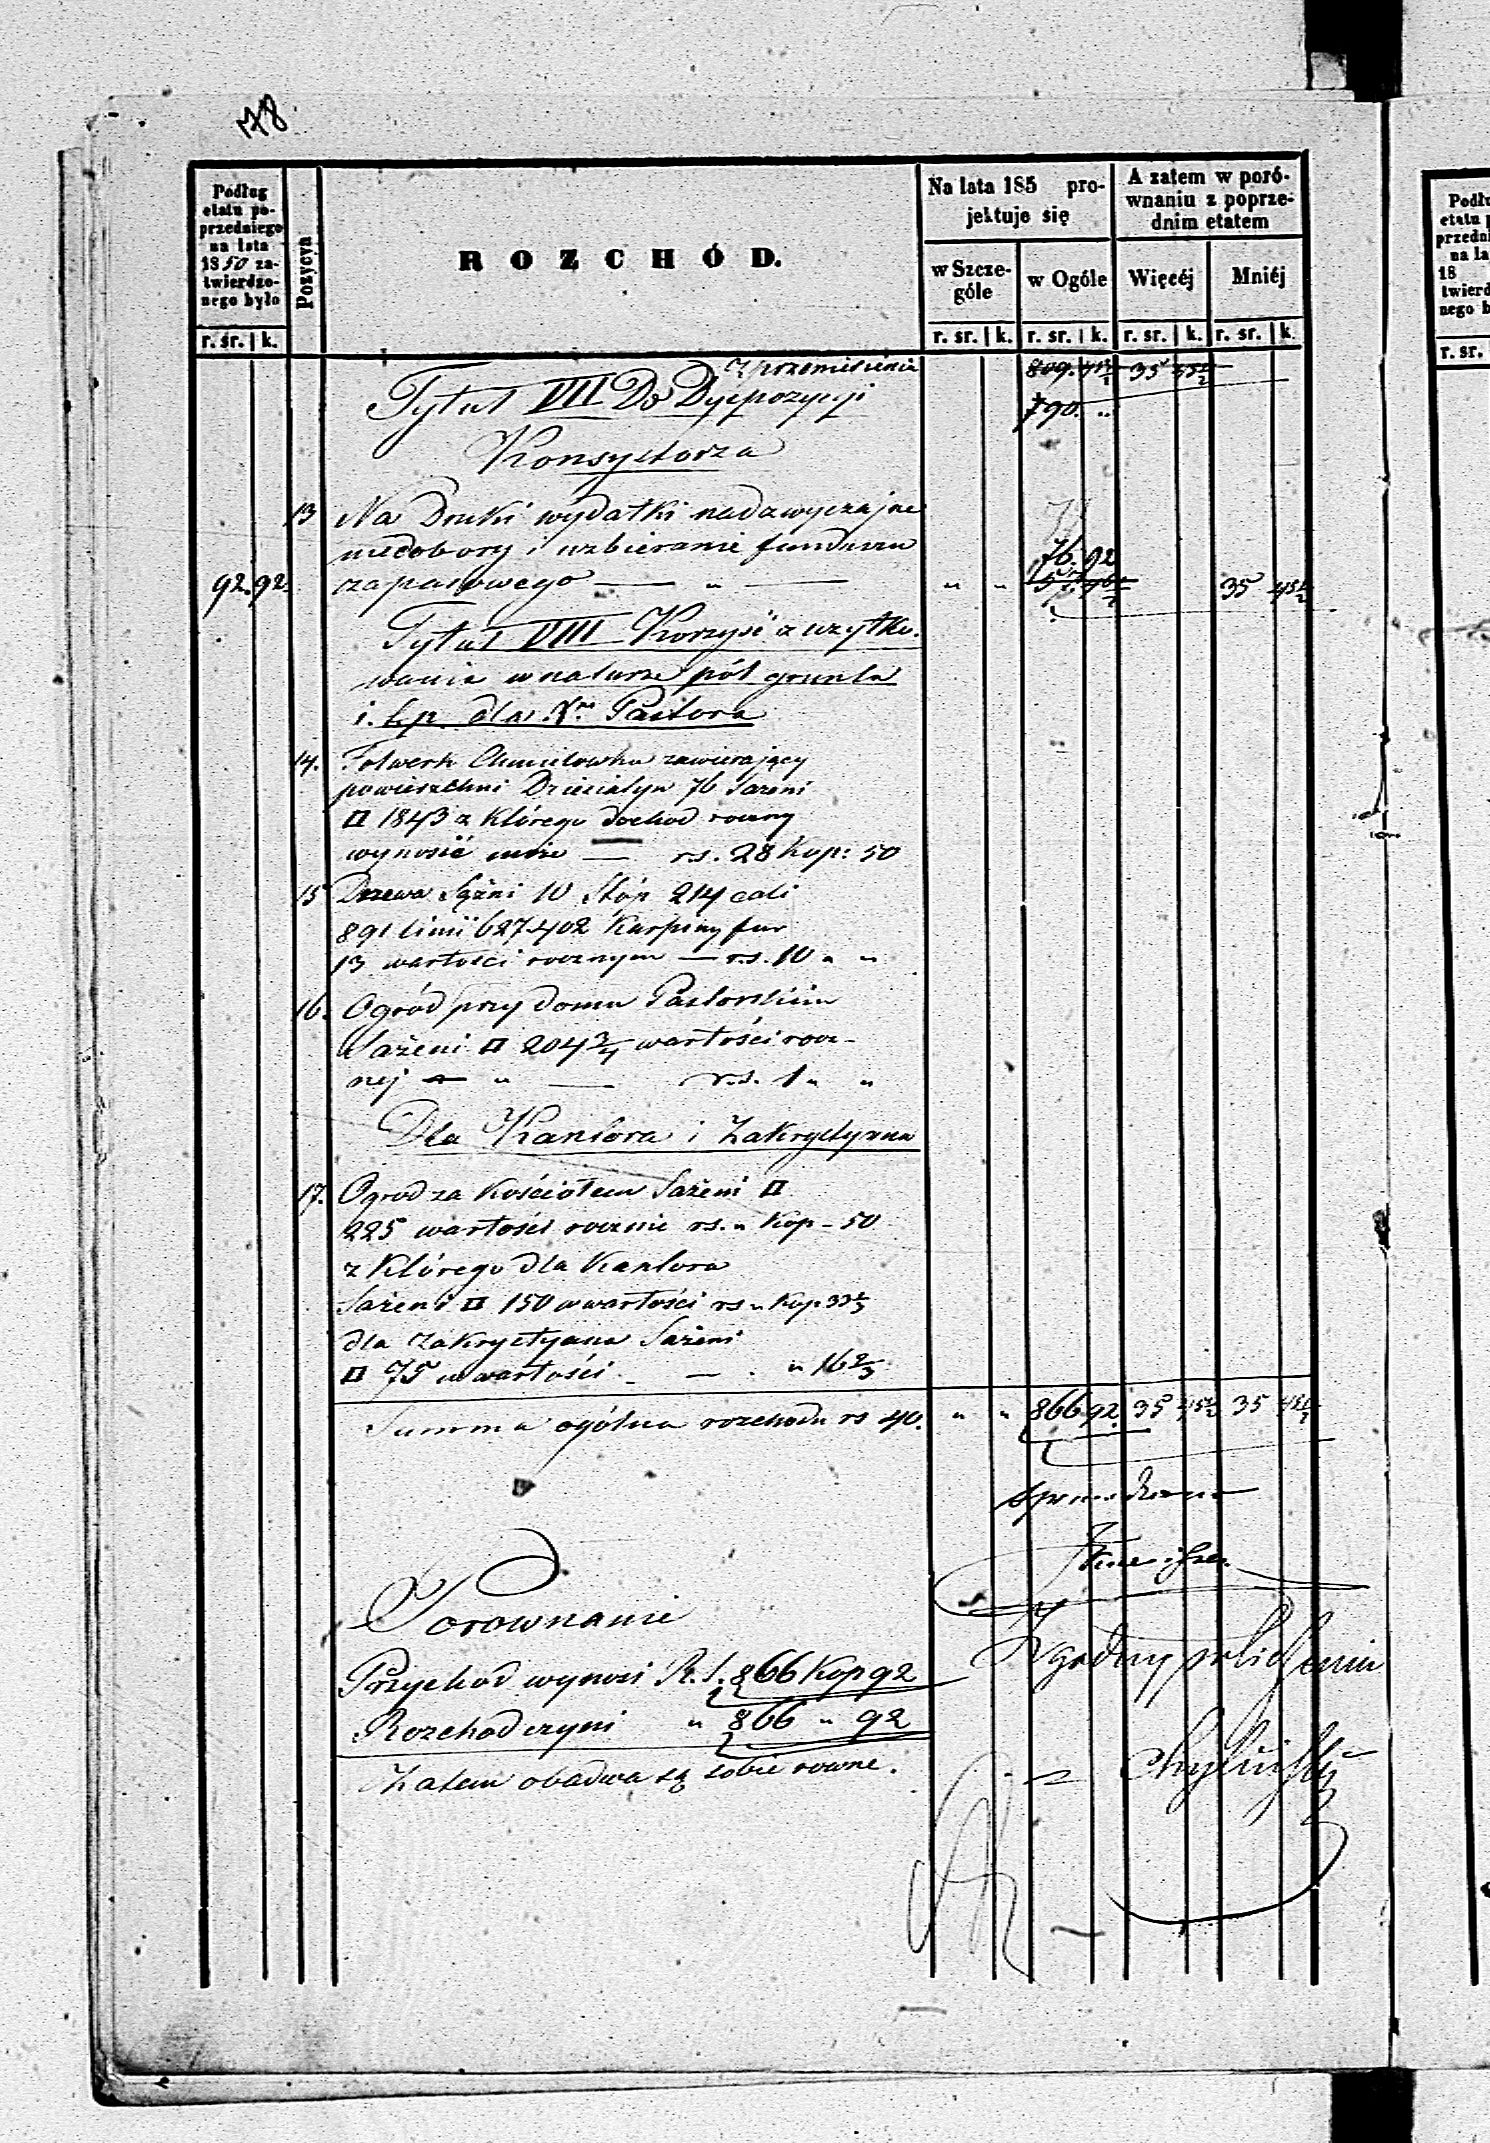 178
Podług etatu poprzedniego na lata 1850 zatwierdzonego było
Pozycya
ROZCHÓD.
Na lata 185 projektuje się
A zatem w porównaniu z poprzednim etatem
w Szczególe
w Ogóle
Więcéj
Mniéj
r. sr. k. r. sr. k. r. sr. k. r. sr. k. r. sr. k.
z przeniesienia 809. 35
Tytuł VII Do Dyspozycyi 790. "
Konsystorza
13 Na Druki wydatki nadzwyczajne
niedobory i uzbieranie funduszu 76. 92
92. 92 zapasowego — " — " " 35 45½
Tytuł VIII Korzyść z użytko-
wania w naturze pól gruntu
i. t. p. dla Xa Pastora
14. Folwark Chmielowka zawierający
powierzchni Dziesiatyn 76 Sażeni
□ 1843 z którego dochod roczny
wynosić może — rs. 28 Kop: 50
15 Drzewa Sążni 10 Stóp 214 cali
891 linii 627.402 Karpiny fur
13 wartości rocznym — rs. 10 " "
16. Ogród przy domu Pastorskim
Sażeni □ 204¾ wartości rocz-
nej — " — rs. 1 " "
Dla Kantora i Zakrystyana
17. Ogrod za Kościołem Sażeni □
225 wartości rocznie rs. " Kop - 50
z którego dla Kantora
Sażeni □ 150 wartości rs " Kop 33⅓
dla Zakrystyana Sażeni
□ 75 wartości - — . " 16⅔
Summa ogólna rozchodu rs 40. " " 866 92 35 45½ 35 45½
Sprawdzono
Porownanie
Przychod wynosi R. S. 866 Kop 92
Rozchod czyni " 866 " 92
Zatem obadwa są sobie rowne.
Podłu
etatu p
przedni
na la
18
twierd
nego b
r. sr.